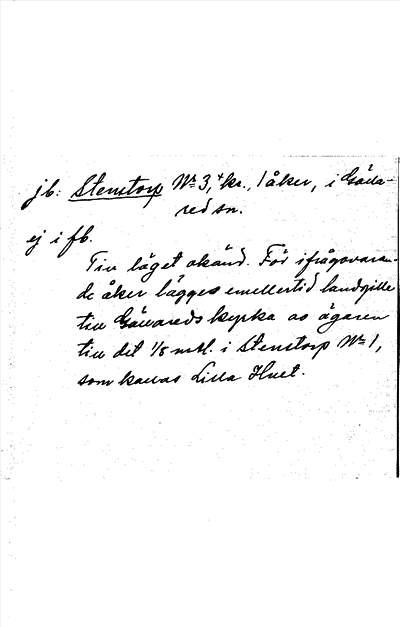 jb: Stenstorp Nr 3, kr., 1 åker, i Gälla-
red sn.
ej i fb.
Till läget okänd. För ifrågavaran-
de åker lägges emellertid landgille
till Gällareds kyrka av ägaren
till det 1/8 mtl. i Stenstorp Nr 1,
som kallas Lilla Hult.